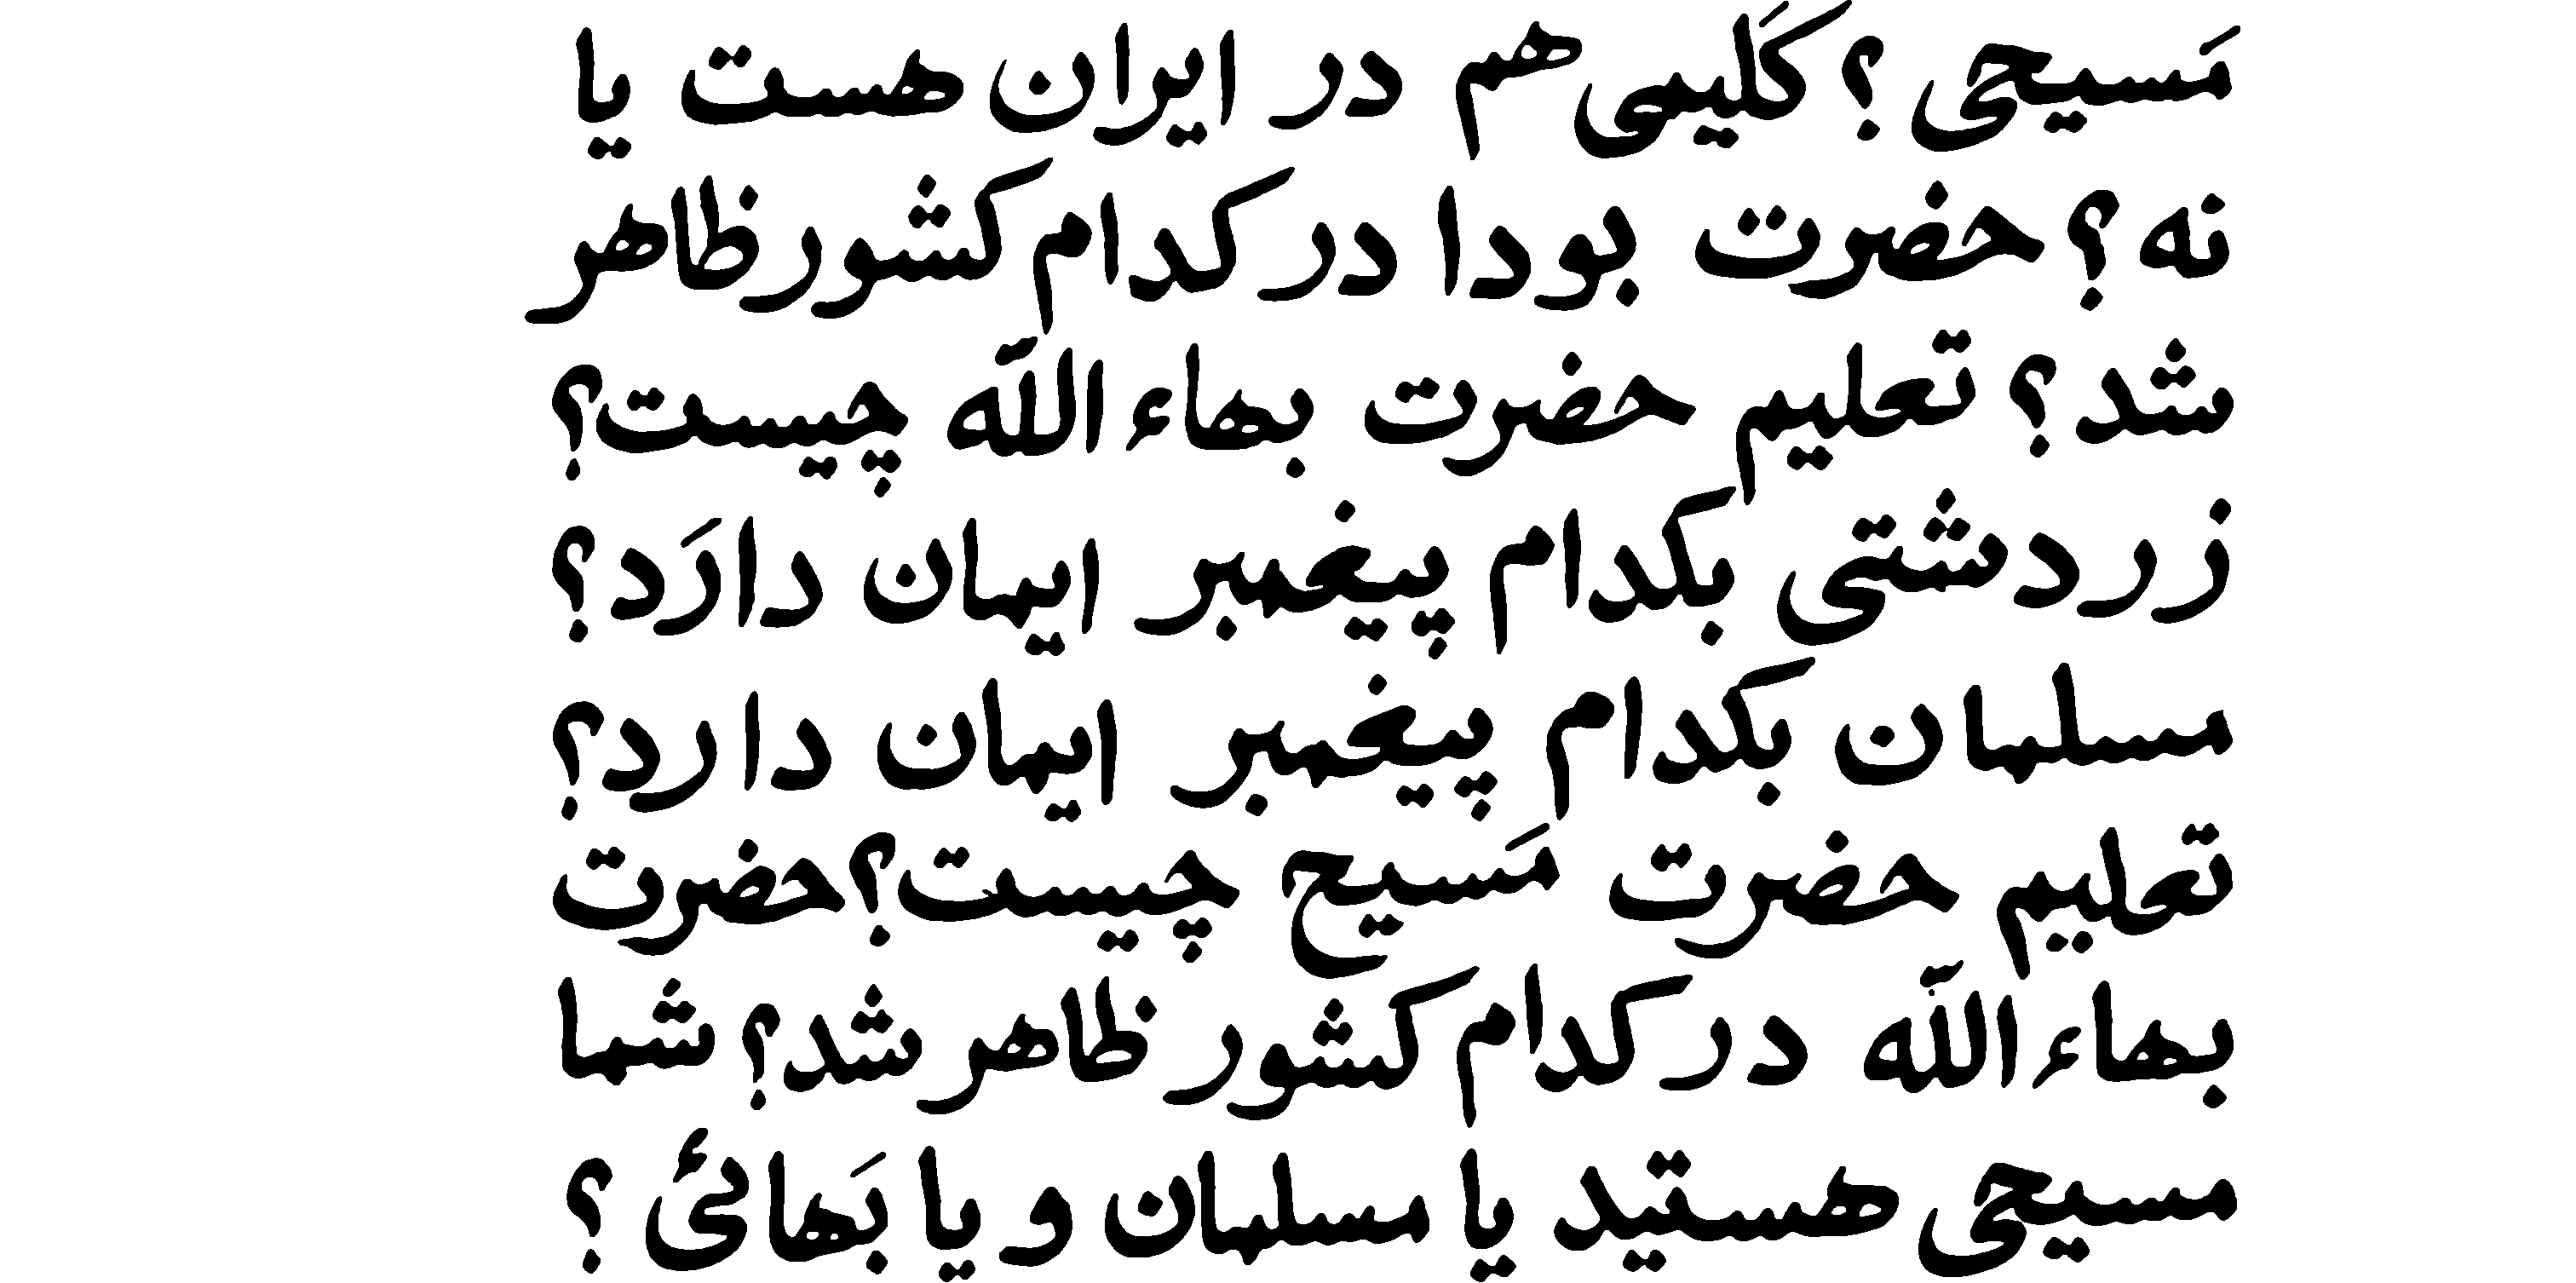 مَسیحی ؟ کَلیمی هم در ایران هست یا
نه ؟ حضرت بودا در کدام کشور ظاهر
شد ؟ تعلیم حضرت بهاء اللّه چیست ؟
زردشتی بکدام پیغمبر ایمان دارَد ؟
مسلمان بکدام پیغمبر ایمان دارد ؟
تعلیم حضرت مَسیح چیست ؟ حضرت
بهاء اللّه در کدام کشور ظاهر شد ؟ شما
مسیحی هستید یا مسلمان و یا بَهائی ؟